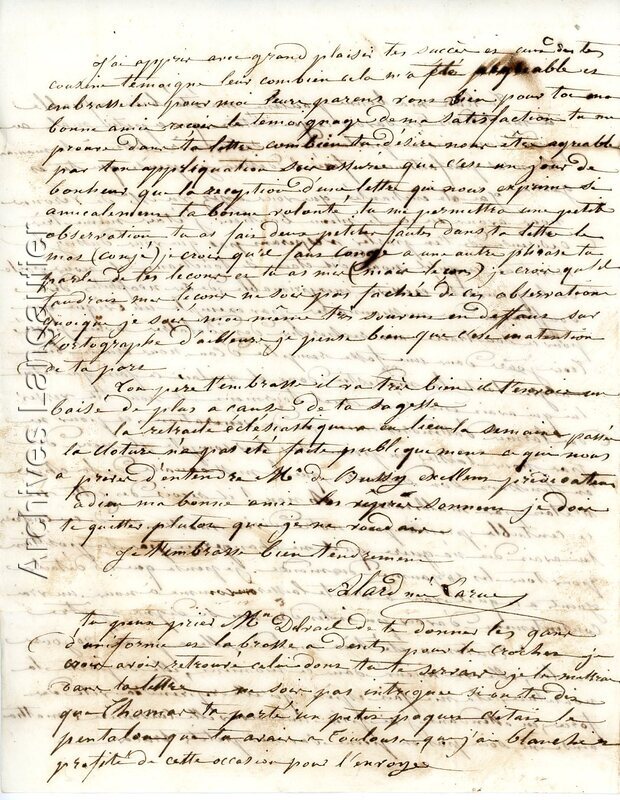 J'ai appris avec grand plaisir tes succès et ceux de tes
cousine témoigne leur combien cela m'a été agreable et
embrasse les pour moi leurs parens aussi bien pour toi ma
bonne amie recois le temoignage de ma satisfaction tu me
prouve dans ta lettre combien tu désire nous etre agreable
par ton appliquation sois assurée que c'est un jour de
bonheur que la reception d'une lettre qui nous exprime si
amicalement ta bonne volonté tu me permettra une petite
observation tu as fait deux petites fautes dans ta lettre le
mot (conjé) je crois qu'il faut congé a une autre phrase tu
parle de tes lecons et tu as mis (mais lecons) je crois qu'il
faudrais mes lecons ne sois pas fachée de ces observations
quoique je sois moi meme tres souvent en deffaut sur
l'ortographe d'ailleurs je pense bien que c'est inatention
de ta part
Ton père t'embrasse il va très bien il t'envoie un
baisé de plus a cause de ta sagesse
la retraite eclesiastique a eu lieu la semaine passée
la cloture n'a pas été faite publiquement ce qui nous
a privés d'entendre Mr de Bussy exellent prédicateur
adieu ma bonne amie les vêpres sonnent je dois
te quitter plutot que je ne voudrais
Je t'embrasse bien tendrement
Alard né Larue
tu peux prier Me Delrail de te donner tes gans
d'uniforme et la brosse a dents pour le crochet je
crois avoir retrouvé celui dont tu te servais je le mettrai
dans ta lettre ne sois pas intriguée si on te dis
que Thomas t'a porté un petit paquet c'étais le
pentalon que tu avais a Toulouse que j'ai blanchi
profité de cette occasion pour l'envoyer
Archives Lancautier